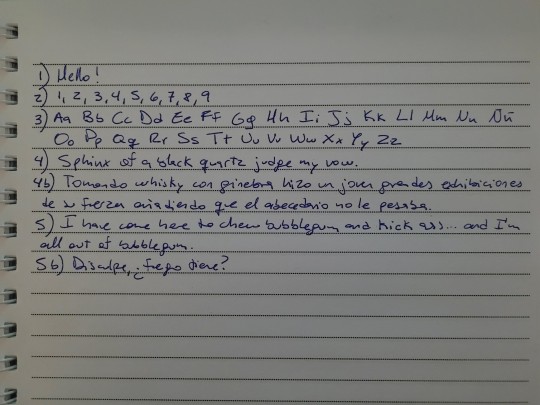 1) Hello!
2) 1, 2, 3, 4, 5, 6, 7, 8, 9
3) Aa Bb Cc Dd Ee Ff Gg Hh Ii Jj Kk Ll Mm Nn Ññ
Oo Pp Qq Rr Ss Tt Uu Vv Ww Xx Yy Zz
4) Sphinx of a black quartz judge my vow.
4b) Tomando whisky con ginebra hizo un joven grandes exhibiciones
de su fuerza añadiendo que el abecedario no le pesaba.
5) I have come here to chew bubblegum and kick ass... and I'm
all out of bubblegum.
5b) Disculpe, ¿fuego tiene?